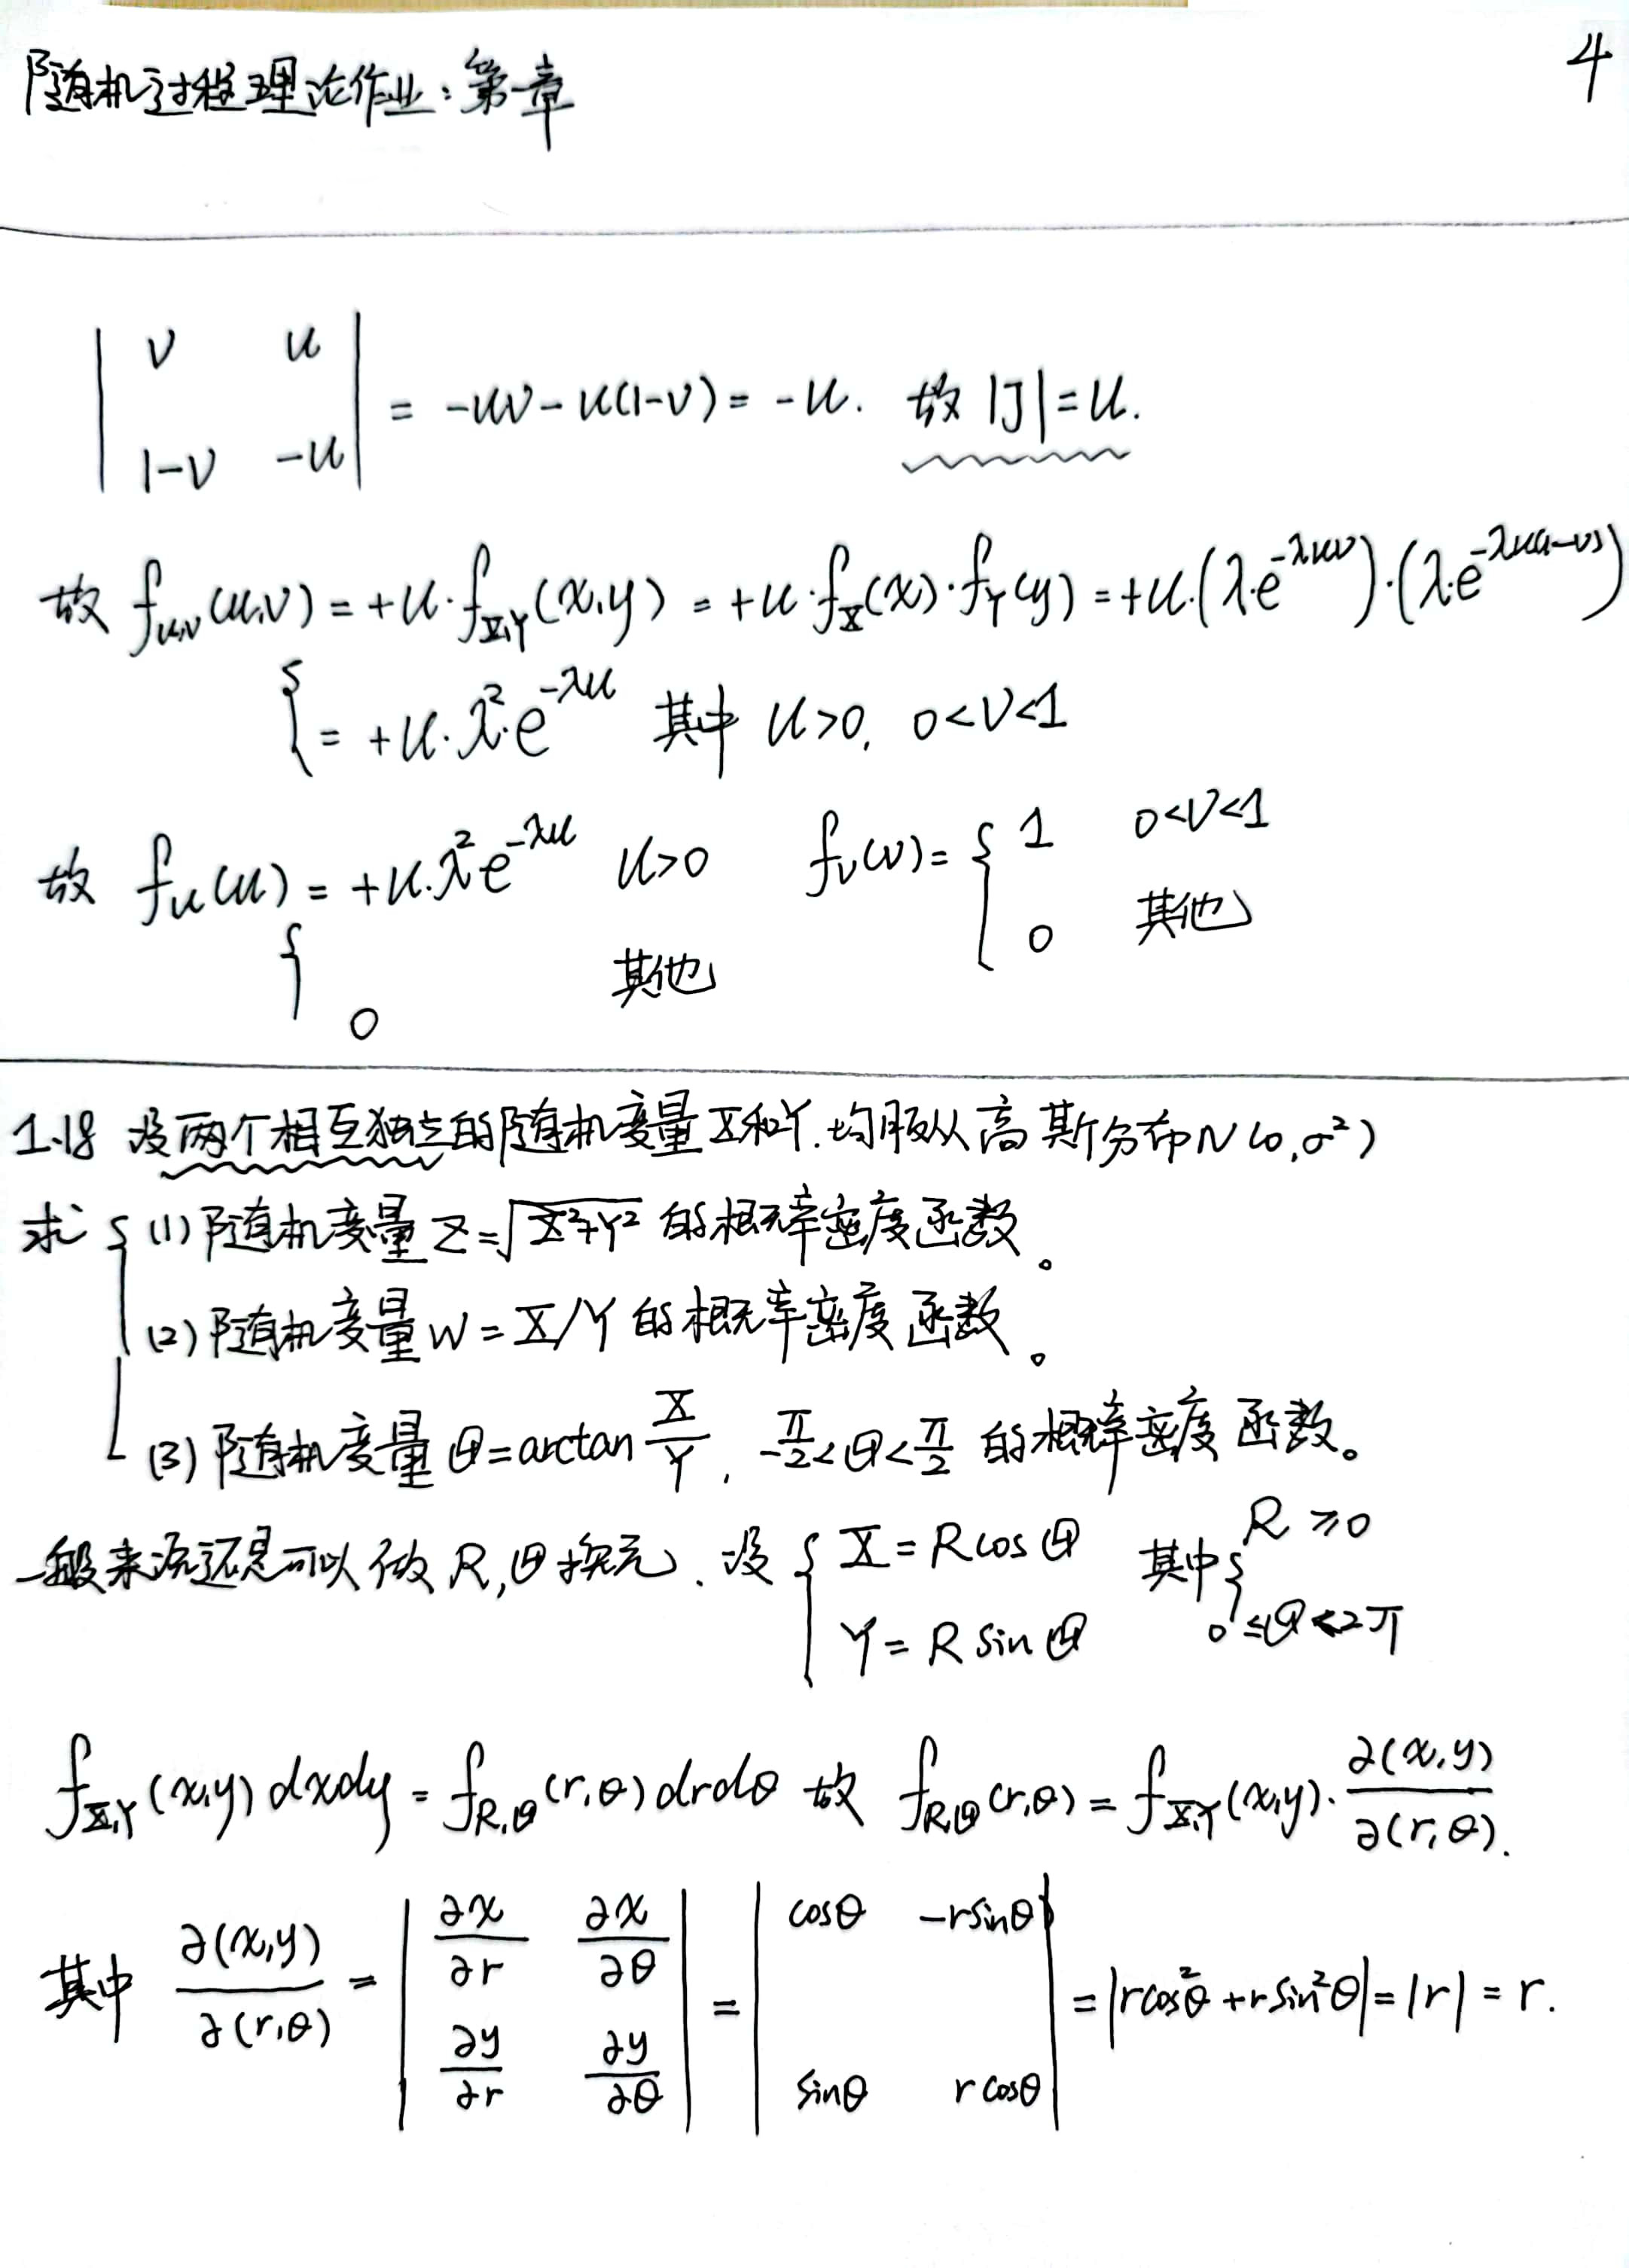 随机过程理论作业：第一章
4
| v u |
| 1-v -u | = -uv-u(1-v)= -u. 故 |J|=u.
故 f_{U,V}(u,v) = +u·f_{X,Y}(x,y) = +u·f_X(x)·f_Y(y) = +u·(λ·e^{-λuv})·(λ·e^{-λu(1-v)})
{ = +u·λ²·e^{-λu} 其中 u>0, 0<v<1
故 f_U(u) = { +u·λ²e^{-λu} u>0
0 其他
f_V(v)= { 1 0<v<1
0 其他
1.18 设两个相互独立的随机变量X和Y.均服从高斯分布N(0,σ²)
求 { (1) 随机变量 Z=√(X²+Y²) 的概率密度函数。
(2) 随机变量 W=X/Y 的概率密度函数。
(3) 随机变量 Θ=arctan X/Y , -π/2<Θ<π/2 的概率密度函数。
一般来说还是可以做 R,Θ换元. 设 { X=RcosΘ 其中{ R≥0
Y=RsinΘ 0≤Θ<2π
f_{X,Y}(x,y)dxdy = f_{R,Θ}(r,θ)drdθ 故 f_{R,Θ}(r,θ)=f_{X,Y}(x,y)·∂(x,y)/∂(r,θ).
其中 ∂(x,y)/∂(r,θ) = | ∂x/∂r ∂x/∂θ | = | cosθ -rsinθ | = |rcos²θ+rsin²θ|=|r|=r.
| ∂y/∂r ∂y/∂θ | | sinθ rcosθ |